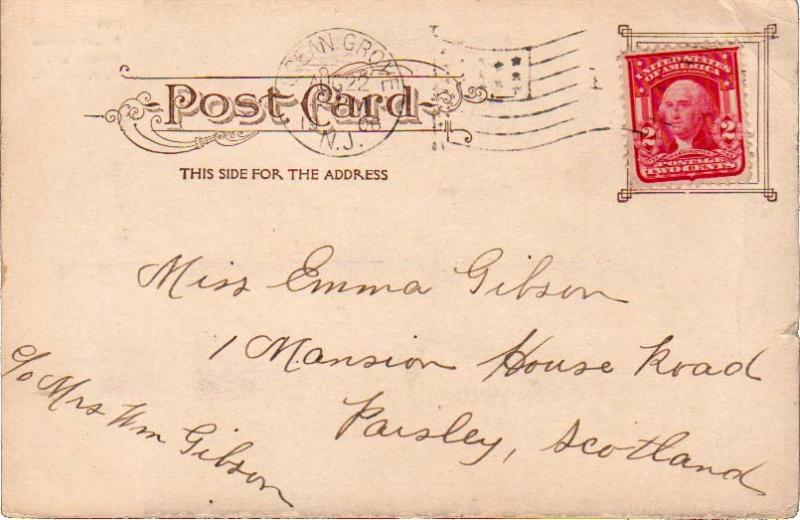 OCEAN GROVE
AUG 22
1906
N.J.
Post Card
THIS SIDE FOR THE ADDRESS
UNITED STATES
OF AMERICA
2 2
POSTAGE
TWO CENTS
Miss Emma Gibson
1 Mansion House Road
Paisley, Scotland
c/o Mrs Wm Gibson